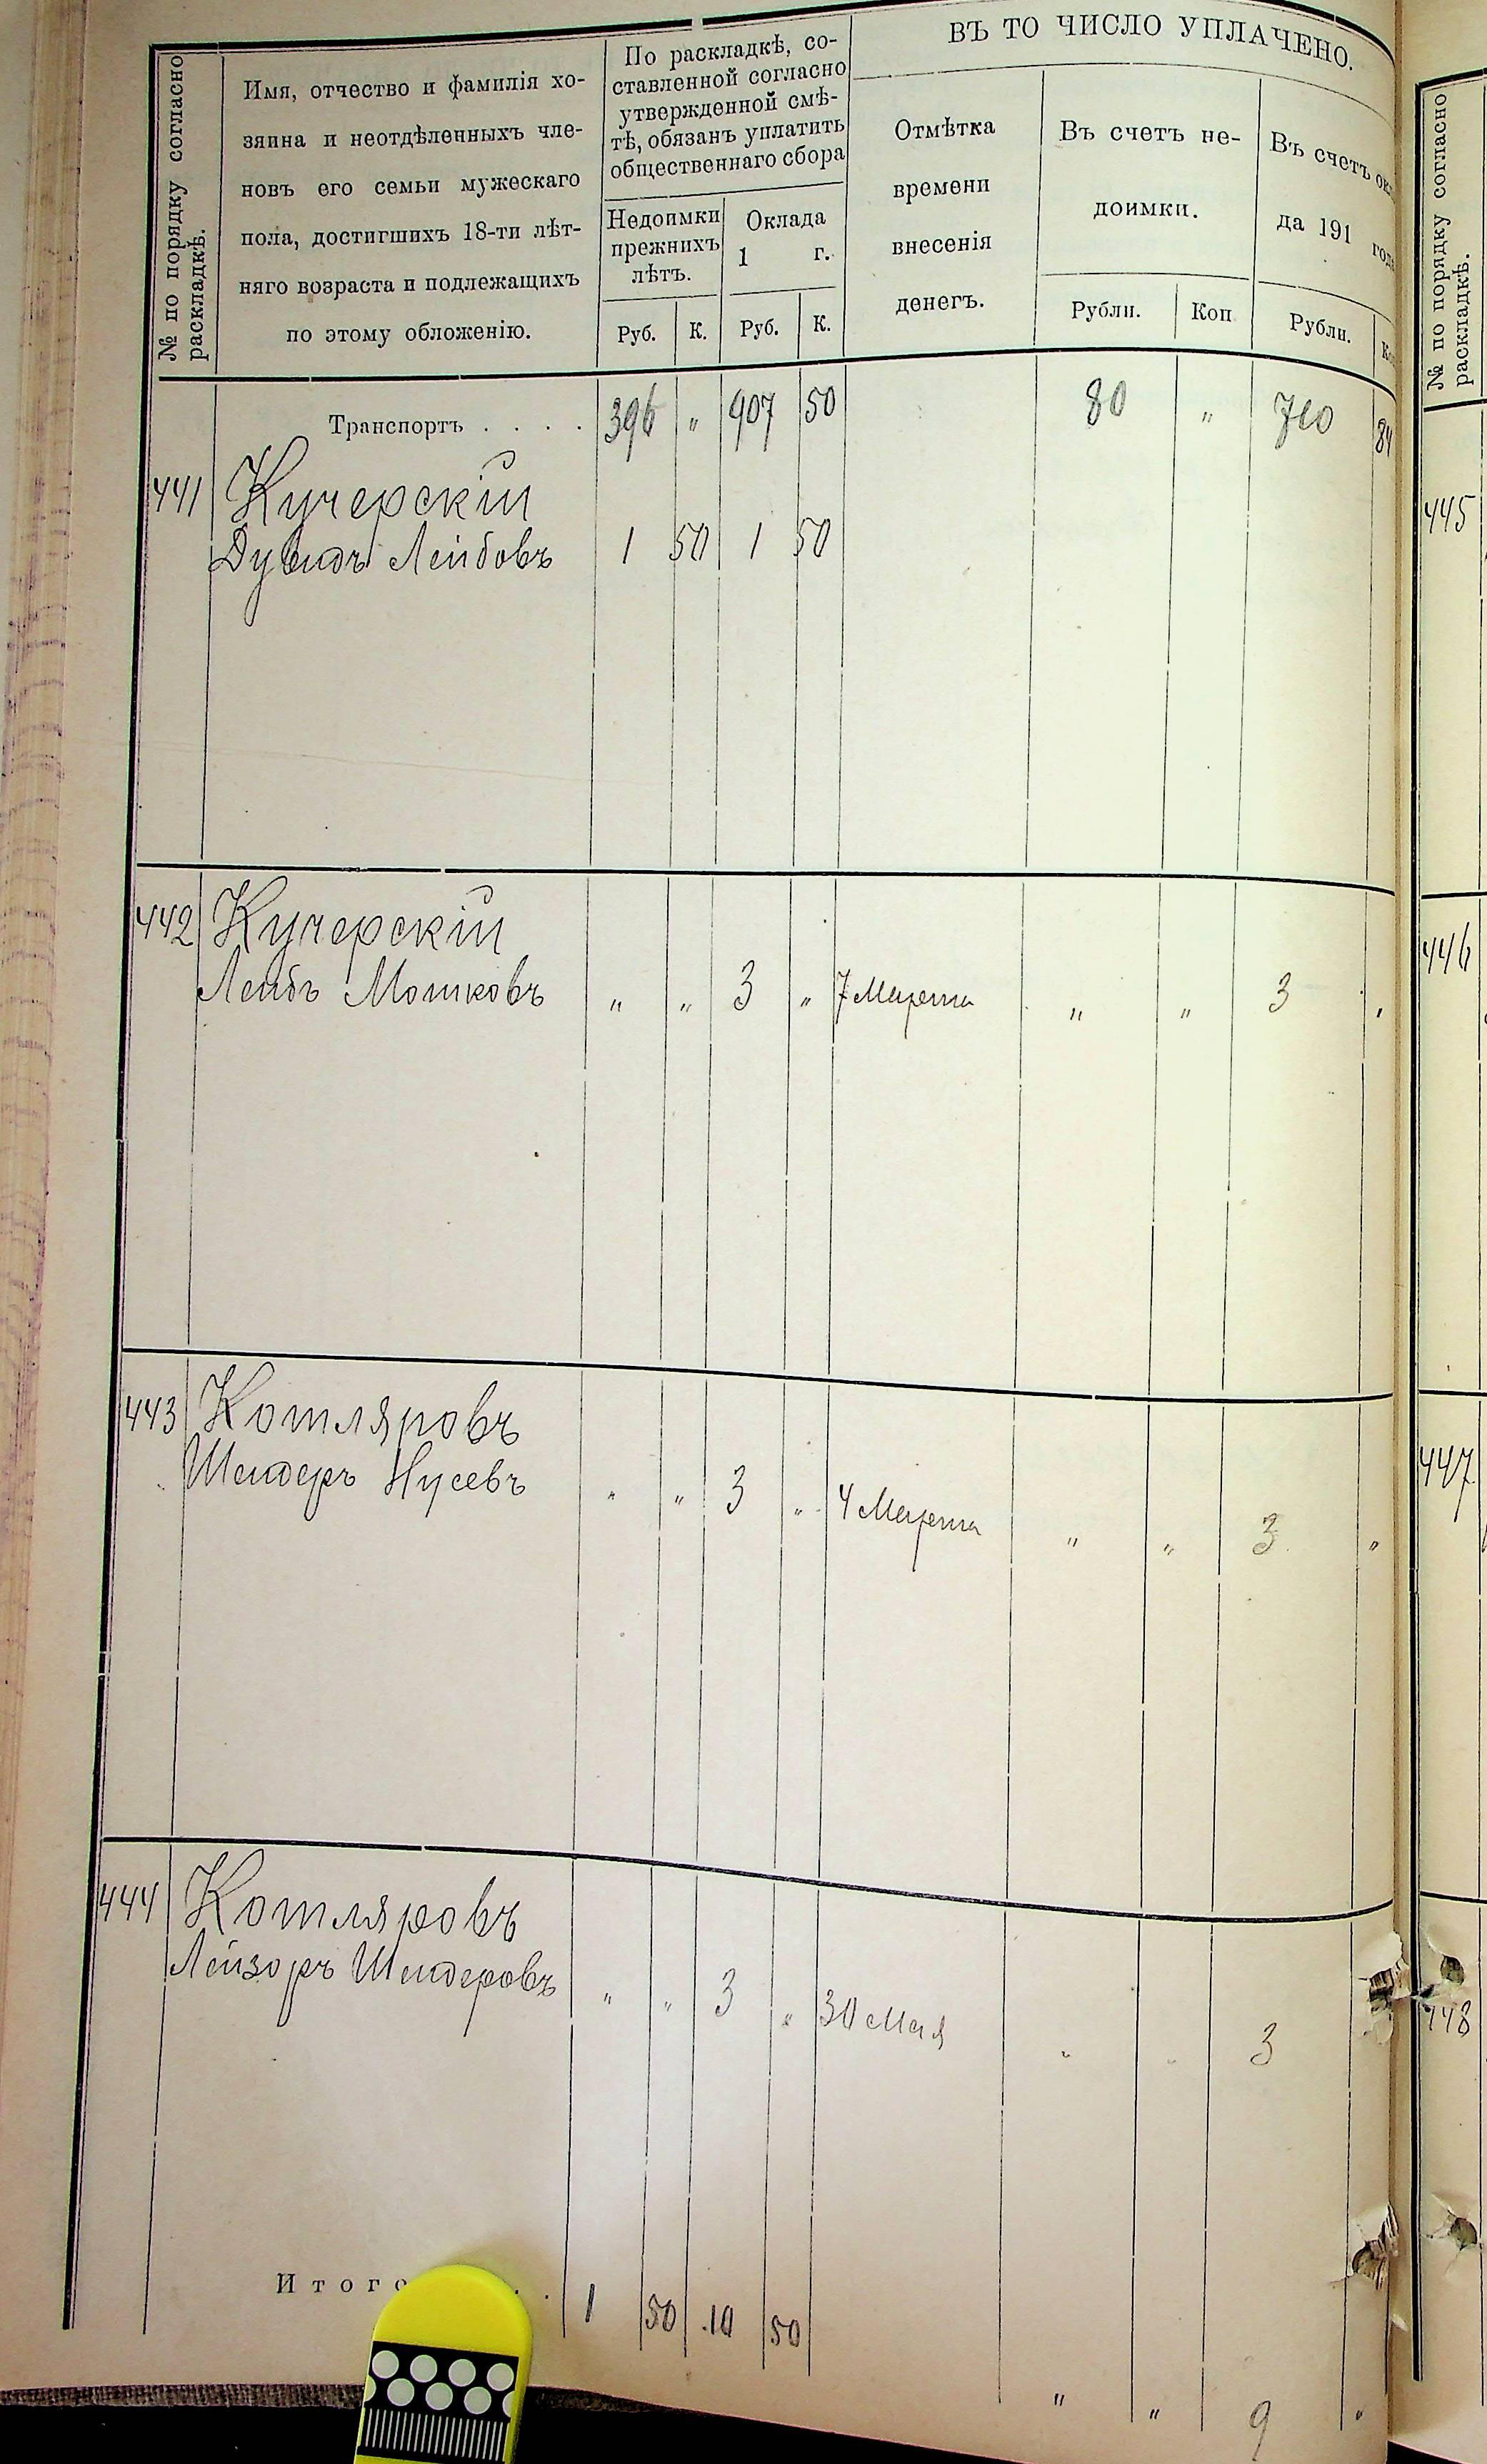 № по порядку согласно
раскладкѣ.
Имя, отчество и фамилія хо-
зяина и неотдѣленныхъ чле-
новъ его семьи мужескаго
пола, достигшихъ 18-ти лѣт-
няго возраста и подлежащихъ
по этому обложенію.
По раскладкѣ, со-
ставленной согласно
утвержденной смѣ-
тѣ, обязанъ уплатить
общественнаго сбора
Недоимки
прежнихъ
лѣтъ.
Оклада
1 г.
Руб. К. Руб. К.
ВЪ ТО ЧИСЛО УПЛАЧЕНО.
Отмѣтка
времени
внесенія
денегъ.
Въ счетъ не-
доимки.
Рубли. Коп
Въ счетъ ок
да 191 года
Рубли. К
Транспортъ . . . . 396 " 907 50 80 " 710 84
441 Кучерскій
Дувидъ Лейбовъ 1 50 1 50
442 Кучерскій
Лейбъ Мошковъ " " 3 " 7 Марта " " 3 "
443 Котляровъ
Шендеръ Нусевъ " " 3 " 4 Марта " " 3 "
444 Котляровъ
Лейзоръ Шендеровъ " " 3 " 30 Мая " " 3
Итого . . 1 50 10 50
" " 9 "
№ по порядку согласно
раскладкѣ.
445
446
447
448